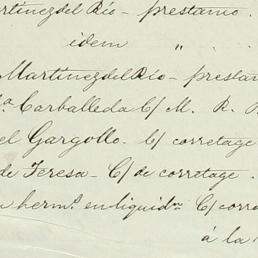 artinez del Río – prestamo.
idem " .
Martinez del Río – prestam
ª Carballeda C/ M. R. P.
el Gargollo. C/ corretage
de Teresa – C/ de corretage.
herms. en liquidn C/ corre
á la